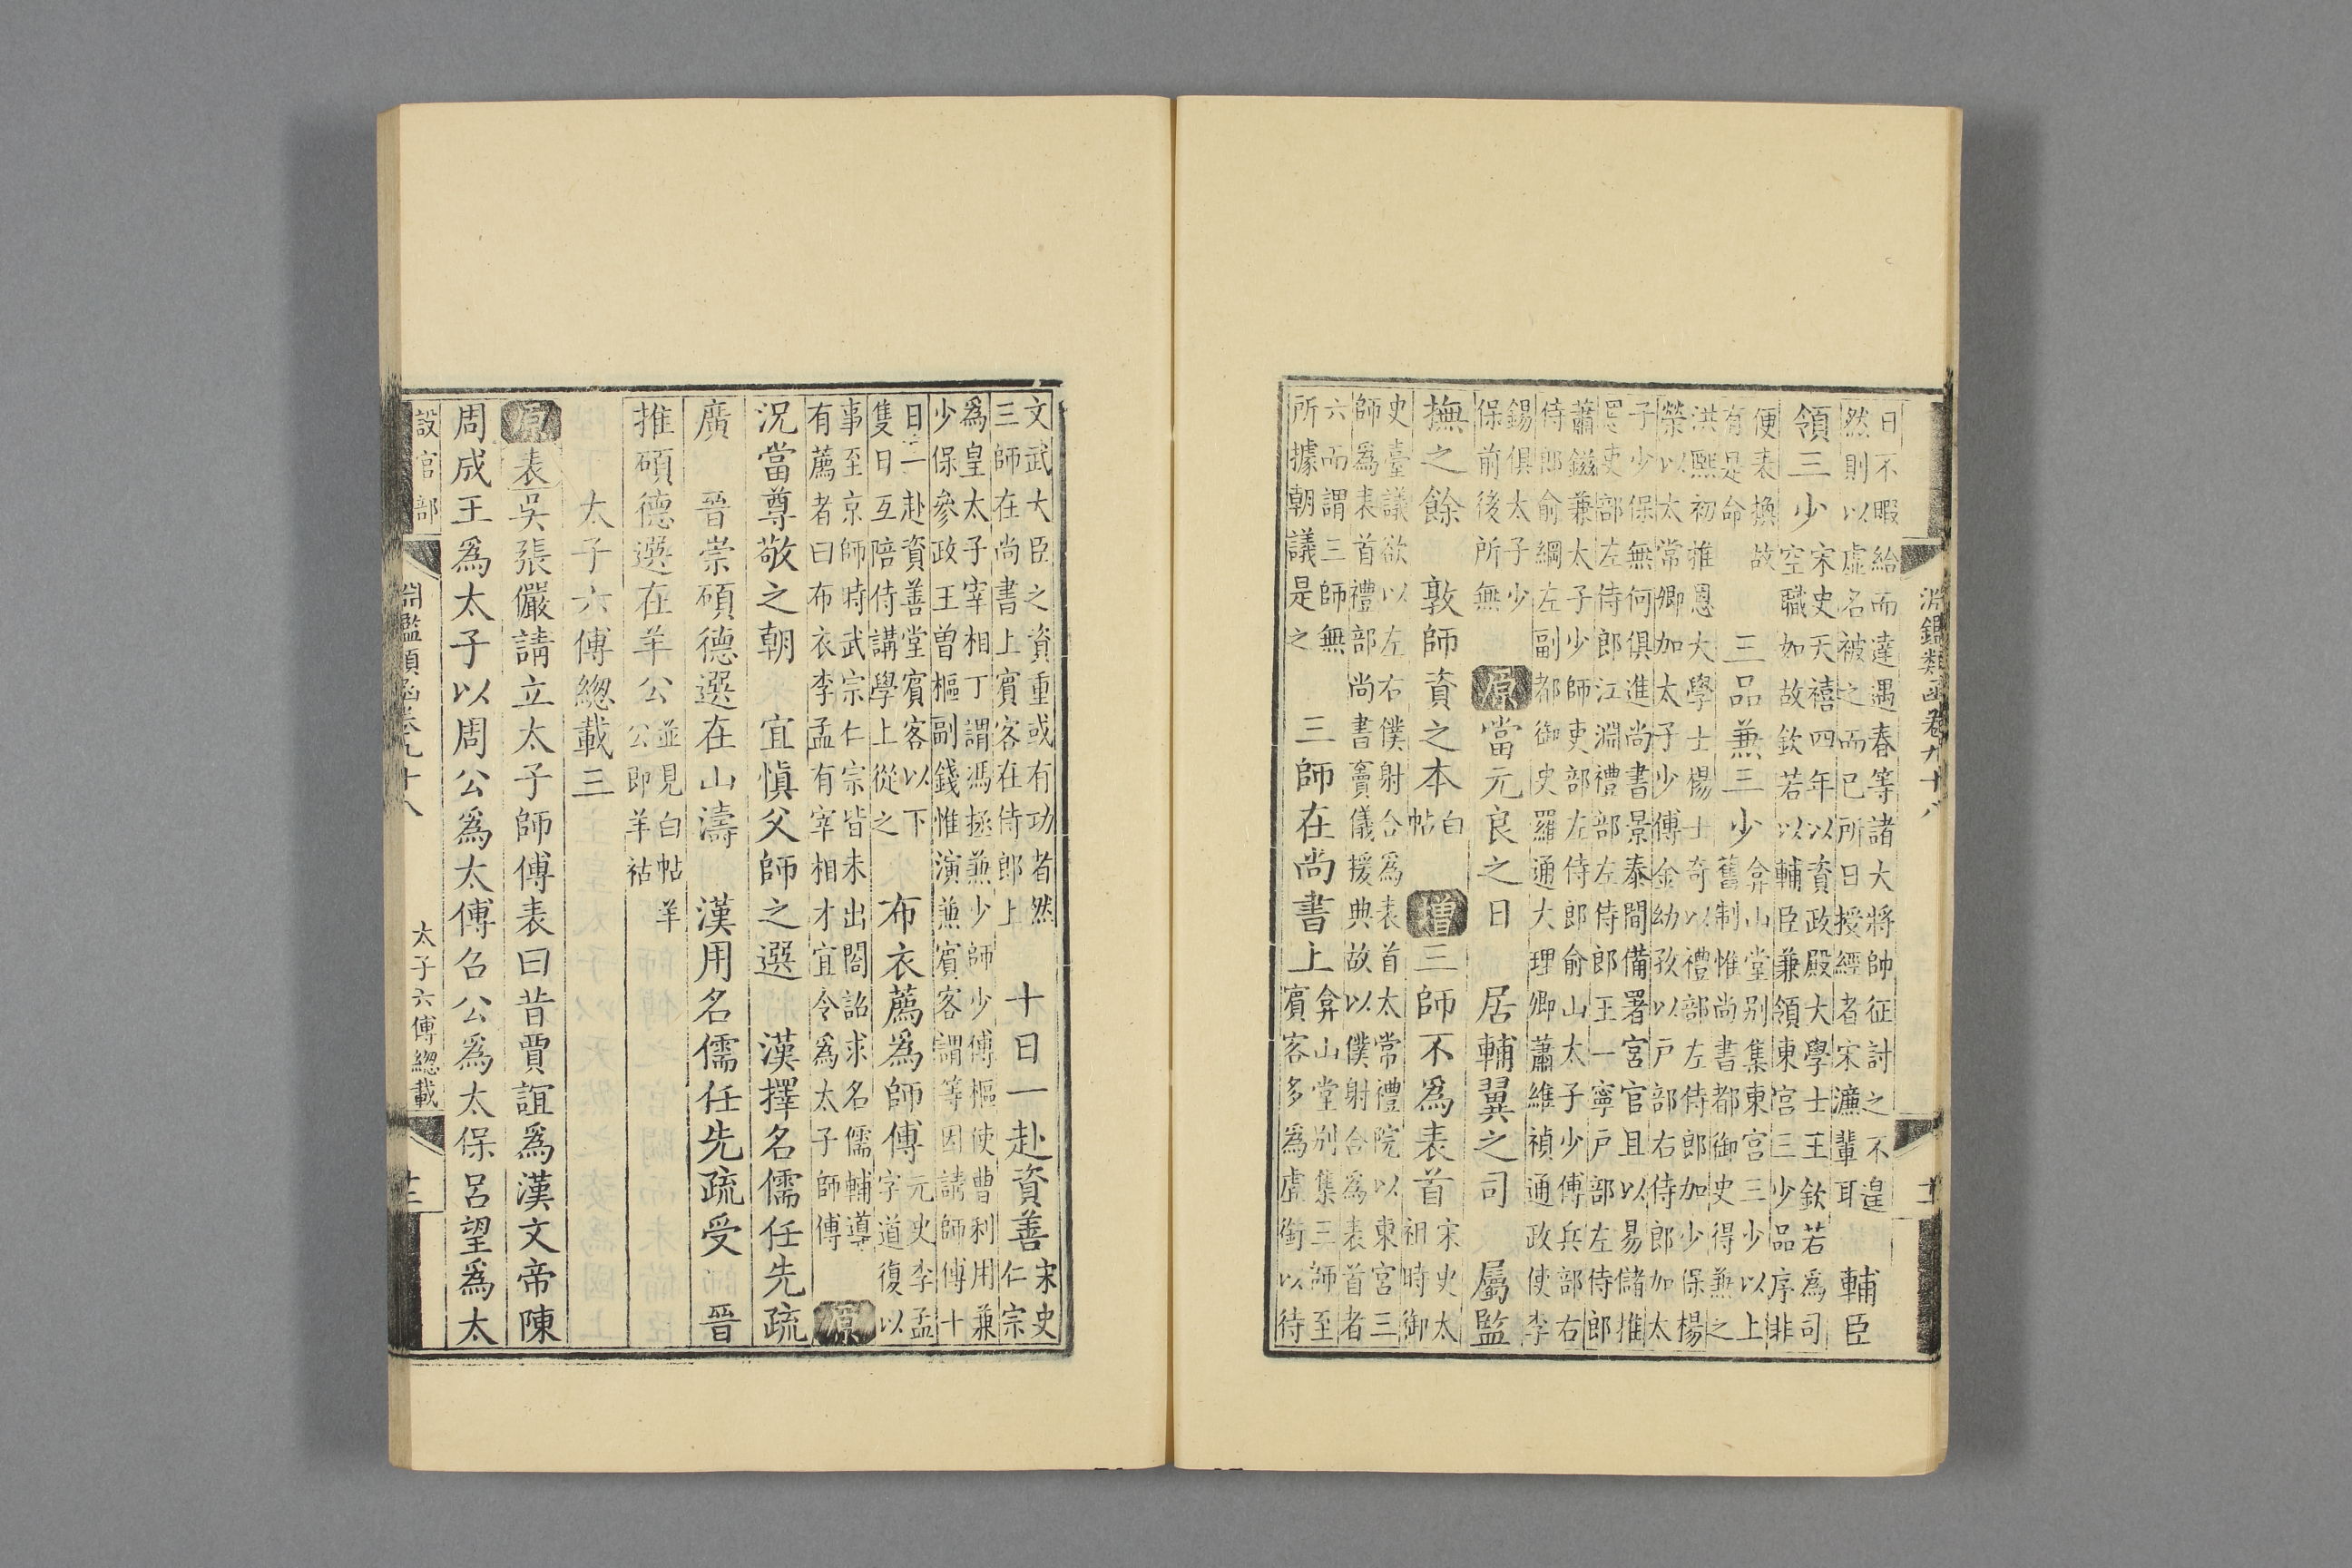 淵鑑類函卷九十八
日不暇給而達遇春等諸大將帥征討之不遑
然則以虛名被之而已所日授經者宋濂輩耳
輔臣
領三少
宋史天禧四年以資政殿大學士王欽若爲司
空職如故欽若以輔臣兼領東宮三少品序非
便表換故
有是命
三品兼三少
弇山堂別集東宮三少以上
舊制惟尚書都御史得兼之
洪熙初推恩大學士楊士奇以禮部左侍郎加少保楊
榮以太常卿加太子少傅金幼孜以戶部右侍郎加太
子少保無何俱進尚書景泰間備署宮官且以易儲推
恩吏部左侍郎江淵禮部左侍郎王一寧戶部左侍郎
蕭鎡兼太子少師吏部左侍郎俞山太子少傅兵部右
侍郎俞綱左副都御史羅通大理卿蕭維禎通政使李
錫俱太子少
保前後所無
原 當元良之日 居輔翼之司 屬監
撫之餘 敦師資之本
白
帖
增 三師不爲表首
宋史太
祖時御
史臺議欲以左右僕射合爲表首太常禮院以東宮三
師爲表首禮部尚書竇儀援典故以僕射合爲表首者
六而謂三師無
所據朝議是之
三師在尚書上
弇山堂別集三師至
賓客多爲虛銜以待
文武大臣之資重或有功者然
三師在尚書上賓客在侍郎上
十日一赴資善
宋史
仁宗
爲皇太子宰相丁謂馮拯兼少師少傅樞使曹利用兼
少保參政王曾樞副錢惟演兼賓客謂等因請師傅十
日一赴資善堂賓客以下
隻日互陪侍講學上從之
布衣薦爲師傅
元史李孟
字道復以
事至京師時武宗仁宗皆未出閤詔求名儒輔導
有薦者曰布衣李孟有宰相才宜令爲太子師傅
原
況當尊敬之朝 宜慎父師之選 漢擇名儒任先疏
廣 晉崇碩德選在山濤 漢用名儒任先疏受 晉
推碩德選在羊公
並見白帖羊
公即羊祜
太子六傅總載三
原 表 吳張儼請立太子師傅表曰昔賈誼爲漢文帝陳
周成王爲太子以周公爲太傅召公爲太保呂望爲太
設官部 淵鑑類函卷九十八 太子六傅總載